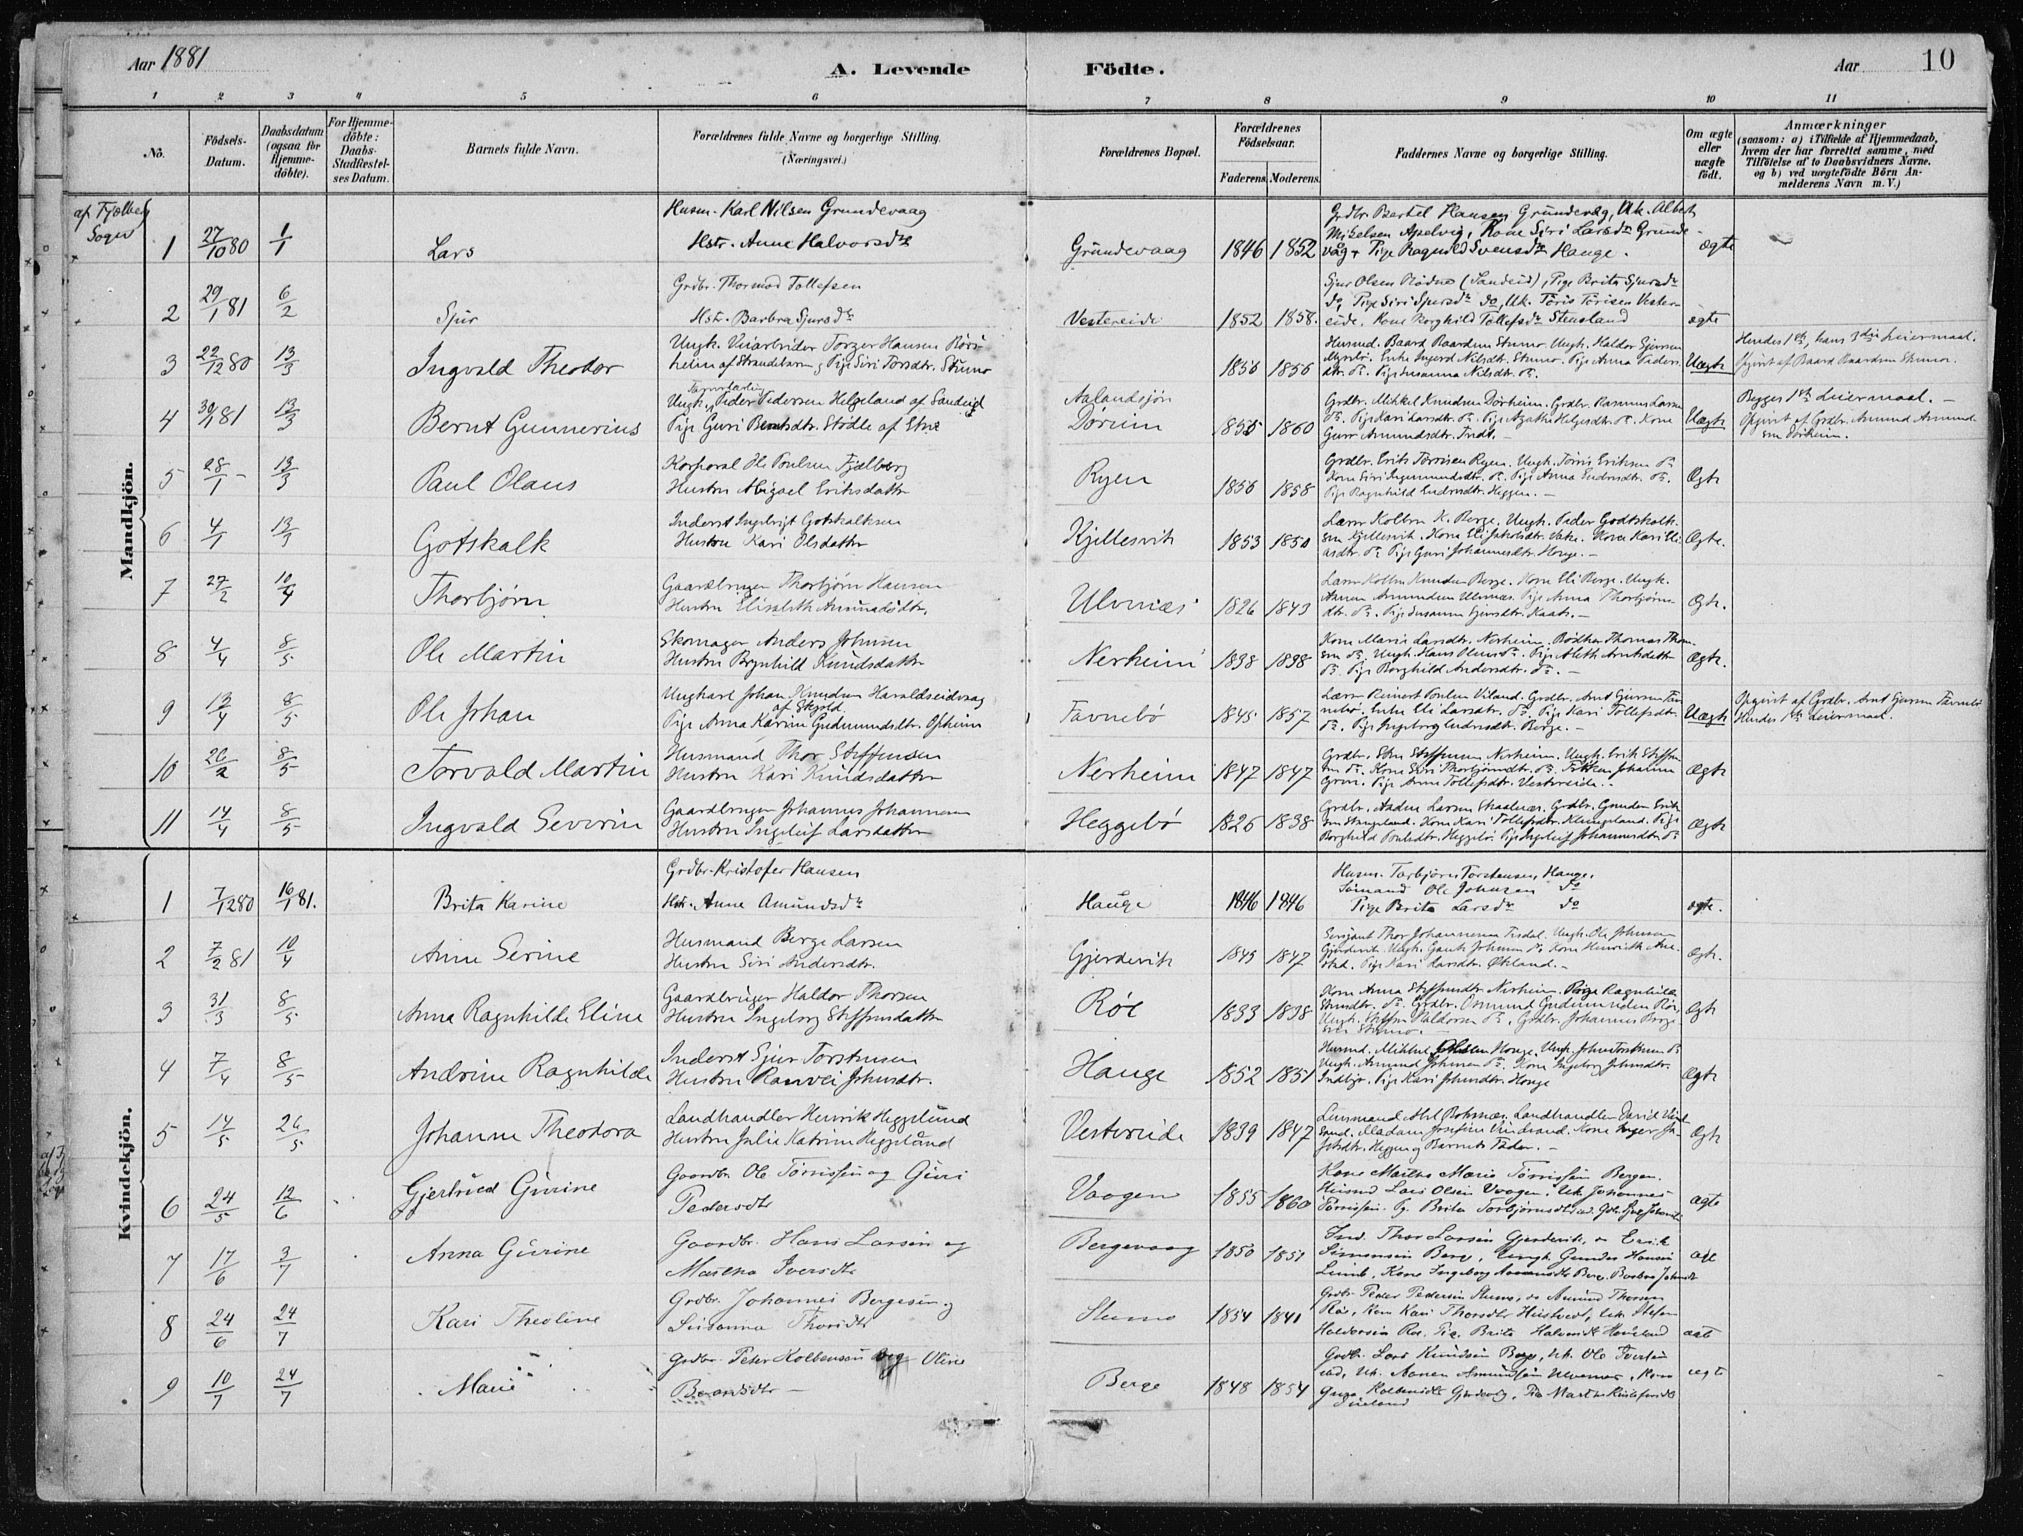 Aar 1881
A. Levende Födte.
Aar 10
1 2 3 4 5 6 7 8 9 10 11
No.
Födsels-Datum.
Daabsdatum (ogsaa for Hjemme-döbte).
For Hjemme-döbte: Daabs-Stadfæstel-ses Datum.
Barnets fulde Navn.
Forældrenes fulde Navne og borgerlige Stilling. (Næringsvei.)
Forældrenes Bopæl.
Forældrenes Födselsaar.
Faderens. Moderens.
Faddernes Navne og borgerlige Stilling.
Om ægte eller uægte födt.
Anmærkninger
(saasom: a) i Tilfælde af Hjemmedaab, hvem der har forrettet samme, med Tilföielse af to Daabsvidners Navne. og b) ved uægtefödte Börn An-melderens Navn m. V.)
af Fjelberg Sogn
Mandkjön.
1 27/10 80 1/1 Lars
Husm. Karl Nilsen Grundevaag
Hstr. Anne Halvorsdr
Grundevaag 1846 1852
Grdbr. Bertel Hansen Grundevåg, Uk. Albert
Mikelsen Apelvig, Kone Siri Larsdr Grunde-
våg, Pige Ragnild Svensdr Hauge.
ægte
2 29/1 81 6/2 Sjur
Grdbr. Thormod Tollefsen
Hstr. Barbra Sjursdr
Vestereide 1852 1858.
Sjur Olsen Rødne (Sandeid), Pige Brita Sjursdr
do, Pige Siri Sjursdr do, Uk. Töris Törisen Vester-
eide, Kone Borghild Tollefsdr Stensland
ægte
3 22/12 80 13/3 Ingvald Theodor
Ungk. Veiarbeider Torger Hansen
heim af Strandebarm, Pige Siri Torsdtr. Stumo
1856 1856
Husmd. Baard Baardsen Stumo. Ungk. Haldor Gjersen
Enke Ingerd Nilsdtr. Stumo. Pige Anna Peders-
dtr. Do. Pige Susanna Nilsdtr. Do.
Uægte
Hendes 1ste, hans 3die Leiermaal.
Opgivet af Baard Baardsen Stumo.
4 30/1 81 13/3 Bernt Gunnerius
Ungk. Peder Pedersen Helgeland af Sandeid
Pige Guri Berntsdtr. Stödle af Etne
Aalandssjön
Dörum 1855 1860
Grdbr. Mikkel Knudsen Dörheim. Grdbr. Rasmus Larsen
Do. Pige Kari Larsdtr. Do. Pige Agathe Helgesdtr. Do. Kone
Guro Amundsdtr. Do.
Uægte
Begges 1ste Leiermaal.
Opgivet af Grdbr. Amund Amund-
sen Dörheim.
5 28/1 13/3 Paul Olaus
Korporal Ole Poulsen Fjælberg
Hustru Abigael Eriksdatter
Ryen 1856 1858
Grdbr. Erik Törrisen Ryen. Ungk. Törris Eriksen Do.
Kone Siri Ingemundsdtr. Do. Pige Anna Endresdtr. Do.
Pige Ragnhild Endresdtr. Heggen.
Ægte
6 4/1 13/3 Gotskalk
Inderst Ingebrigt Gotskalksen
Hustru Kari Olsdatter
Kjillesvik 1853 1850
Lærer Kolben K. Berge. Ungk. Peder Godtskalk-
sen Kjillesvik. Kone Eli Jakobsdtr. Vake. Kone Kari Eli-
asdtr. Do. Pige Guri Johannesdtr. Houge.
Ægte.
7 27/2 10/4 Thorbjörn
Gaardbruger Thorbjörn Hansen
Hustru Elisabeth Amundsdtr.
Ulvenæs 1826 1843
Lærer Kolben Knudsen Berge. Kone Eli Berge. Ungk.
Aanen Amundsen Ulvenæs. Pige Anna Thorbjörns-
dtr. Do. Pige Susanne Gjersdtr. Kaate.
Ægte.
8 4/4 8/5 Ole Martin
Skomager Anders Johnsen
Hustru Brynhild Knudsdatter
Nerheim 1838 1838
Kone Marie Larsdtr. Nerheim. Bödker Thomas Thom-
sen Do. Ungk. Hans Olsen Do. Pige Aleth Arntsdatter
Do. Pige Borghild Andersdtr. Do.
Ægte.
9 13/4 8/5 Ole Johan
Ungkarl Johan Knudsen Haraldseidvaag
af Skjold.
Pige Anna Karine Gudmundsdtr. Opheim
Tavnebö 1845 1857
Lærer Reinert Poulsen Viland. Grdbr. Arnt Gjersen Tav-
nebö. Enke Eli Larsdtr. Do. Pige Kari Tollefsdtr.
Do. Pige Ingeborg Endresdtr. Berge.
Uægte
Opgivet af Grdbr. Arnt Gjersen Tavnebö
Hendes 1ste Leiermaal.
10 26/2 8/5 Torvald Martin
Husmand Thor Steffensen
Hustru Kari Knudsdatter
Nerheim 1847 1847
Grdbr. Sten Steffensen Nerheim. Ungk. Erik Steffen-
sen Do. Kone Siri Thorbjörnsdtr. Do. Johanne
Pige Anna Tollefsdtr. Vestereide.
Ægte
11 14/4 8/5 Ingvald Severin
Gaardbruger Johannes Johannesen
Hustru Ingeleif Larsdatter
Heggebö 1826 1838
Grdbr. Aadne Larsen Skaalnæs. Grdbr. Gunder Erik-
sen Stangeland. Kone Kari Tollefsdtr. Klungeland. Pige
Borghild Poulsdtr. Heggebö. Pige Ingeleif Johannesdtr. Do
Ægte
Kvindekjön.
1 7/12 80 16/1 81. Brita Karine
Grdbr. Kristofer Hansen
Hstr. Anne Amundsdr
Hauge 1846 1846
Husm. Torbjörn Torstensen, Hauge,
Sömand Ole Johnsen do
Pige Brita Larsdr do
ægte.
2 7/2 81 10/4 Anne Serine
Husmand Berge Larsen
Hustru Siri Andersdtr.
Gjerdevik 1845 1847
Sersjant Thor Johannesen Tisdal. Ungk. Ole Johnsen
Gjerdevik. Ungk. Gaute Johnsen Do. Kone Henrikke Ane-
stad. Pige Kari Larsdtr. Økland.
Ægte.
3 31/3 8/5 Anna Ragnhilde Eline
Gaardbruger Haldor Thorsen
Hustru Ingeborg Steffensdatter
Röe 1833 1838
Kone Anna Steffensdtr. Nerheim. Pige Ragnhilde
Do. Grdbr. Osmund Gudmundsen Röe,
Ungk. Steffen Haldorsen Do. Grdbr. Johannes Berge-
sen Stumo.
Ægte
4 7/4 8/5 Andrine Ragnhilde
Inderst Sjur Torstensen
Hustru Ranvei Johnsdtr.
Hauge 1852 1851
Husmd. Mikkel Houge. Ungk. John Torstensen Do.
Ungk. Amund Johnsen Do. Kone Ingeborg Johnsdtr.
Pige Kari Johnsdtr. Houge
Ægte
5 14/5 26/5 Johanne Theodora
Landhandler Henrik Heggelund
Hustru Julie Katrine Heggelund
Vestereide 1839 1847
Lensmand Abel Rohsnæs. Landhandler David Vind-
rand. Madam Josefine Vindrand. Kone Inger Ja-
kobsdtr. Heggen og Barnets Fader.
Ægte
6 24/5 12/6 Gjertrued Gurine
Gaardbr. Ole Tönnissen og Guri
Pedersdtr
Vaagen 1855 1860
Kone Martha Marie Tönnissen Bergen.
Husmd Lars Olsen Vaagen, Uk. Johannes
Tönnissen. Pg. Brita Torbjörnsdtr
ægte
7 17/6 3/7 Anna Gurine
Gaardbr. Hans Larsen og
Martha Iversdtr
Bergevaag 1850 1851
Ind. Thor Larsen Gjerdevik, o Erik
Simonsen Berg, Ungk. Gunder Hansen
Limb, Kone Ingeborg Berg. Barbra Johnsdtr
8 24/6 24/7 Kari Theoline
Grdbr. Johannes Bergesen og
Susanna Thorsdtr
Stumo 1854 1841
Grdbr Peder Pedersen Stumo, o Amund Thorsen
Röe, Kone Kari Thorsdtr Hustvedt, Uk. Stefen
Haldorsen Röe. Pig. Brita Halvorsdt Houeland
9 10/7 24/7 Marie
Grdbr. Peter Kolbensen og Oline
Baardsdtr
Berge 1848 1854
Grdbr. Lars Knudsen Berge, Uk. Ole Iversen
Uk. Aanen Amundsen Ulvenes, Kone
Kolbensdtr Gjerdevig, Pig Martha
ægte